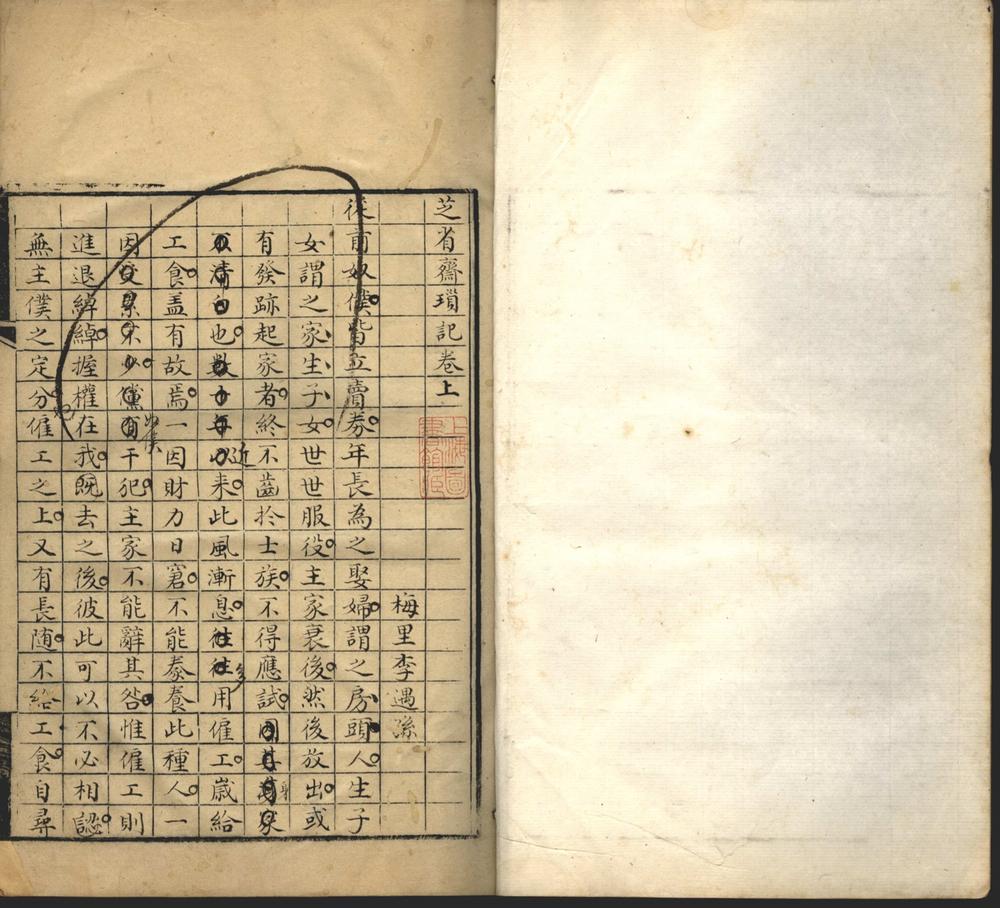 芝省齋瑣記卷上
梅里李遇孫
從前奴僕皆立賣券年長為之娶婦謂之房頭人生子
女謂之家生子女世世服役主家衰後然後放出或
有發跡起家者終不齒於士族不得應試因其身家
不清白也數十年以近来此風漸息往往多用僱工歲給
工食盖有故焉一因財力日窘不能豢養此種人一
因交累不少僕有干犯主家不能辭其咎惟僱工則
進退綽綽握權在我既去之後彼此可以不必相認
無主僕之定分僱工之上又有長随不給工食自尋
上海圖書館藏